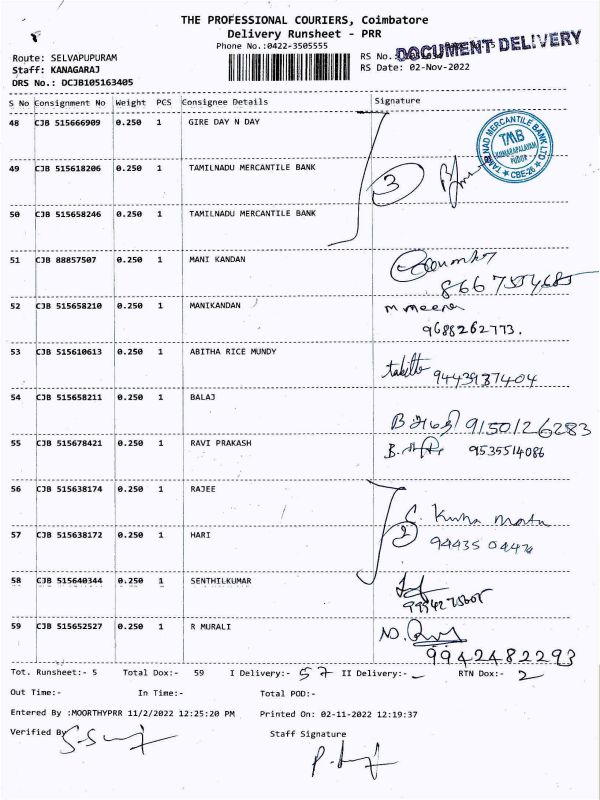 THE PROFESSIONAL COURIERS, Coimbatore
Delivery Runsheet - PRR
Phone No.:0422-3505555
DOCUMENT DELIVERY
Route: SELVAPUPURAM
RS No.:
Staff: KANAGARAJ
RS Date: 02-Nov-2022
DRS No.: DCJB105163405
S No Consignment No Weight PCS Consignee Details Signature
48 CJB 515666909 0.250 1 GIRE DAY N DAY
TAMILNAD MERCANTILE BANK LTD
TMB
KUMARAPALAYAM
PUDUR
CBE-26
49 CJB 515618206 0.250 1 TAMILNADU MERCANTILE BANK
3
50 CJB 515658246 0.250 1 TAMILNADU MERCANTILE BANK
51 CJB 88857507 0.250 1 MANI KANDAN
52 CJB 515658210 0.250 1 MANIKANDAN
M Meena
9688262773.
53 CJB 515610613 0.250 1 ABITHA RICE MUNDY
9443937404
54 CJB 515658211 0.250 1 BALAJ
9150126283
55 CJB 515678421 0.250 1 RAVI PRAKASH
9535514086
56 CJB 515638174 0.250 1 RAJEE
57 CJB 515638172 0.250 1 HARI
2
94435 04474
58 CJB 515640344 0.250 1 SENTHILKUMAR
59 CJB 515652527 0.250 1 R MURALI
9942482293
Tot. Runsheet:- 5 Total Dox:- 59 I Delivery:- 57 II Delivery:- - RTN Dox:- 2
Out Time:- In Time:- Total POD:-
Entered By :MOORTHYPRR 11/2/2022 12:25:20 PM Printed On: 02-11-2022 12:19:37
Verified By
Staff Signature